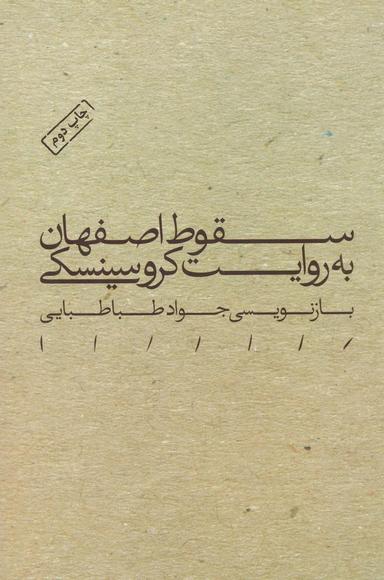 چاپ دوم
سقوط اصفهان
به روایت کروسینسکی
بازنویسی جواد طباطبایی